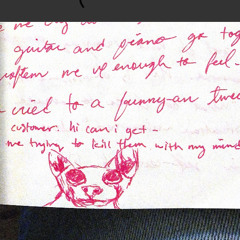 guitar and piano go tog
me up enough to feel-
cried to a funny-an twee
customer. hi can i get-
me trying to kill them with my mind